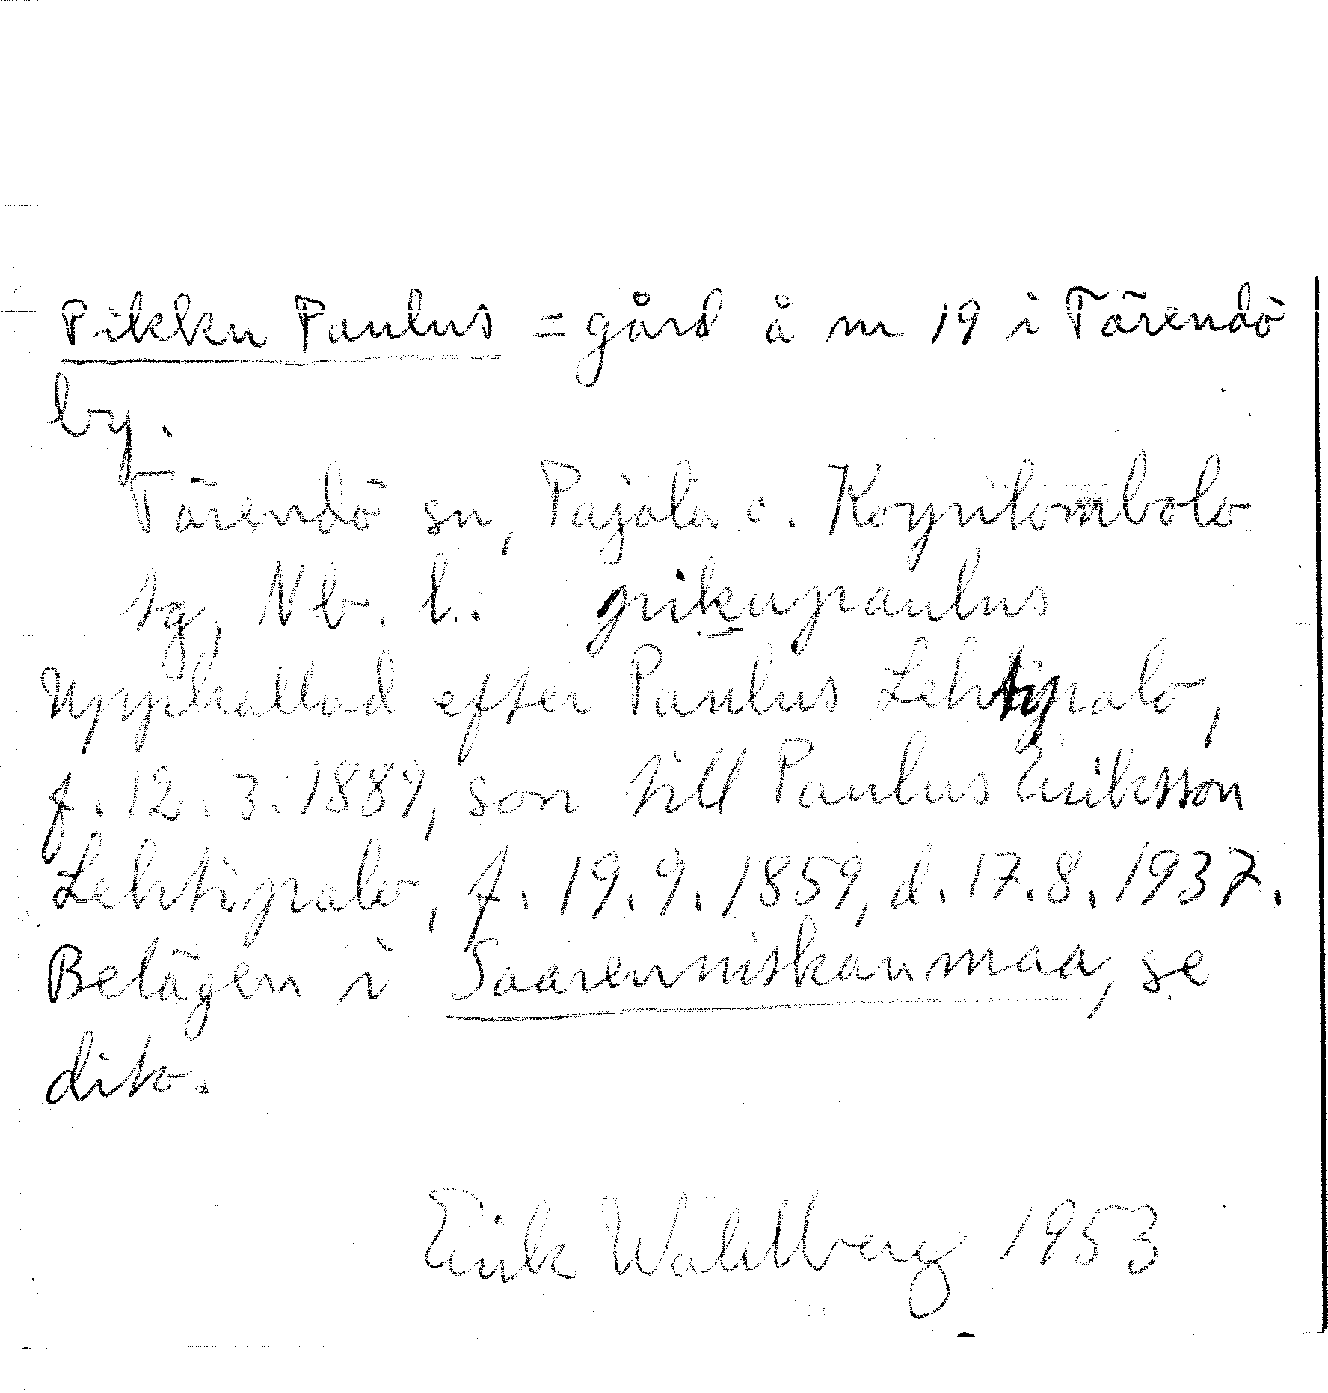 Pikku Paulus = gård å nr 19 i Tärendö
by.
Tärendö sn, Pajala o. Korpilombolo
tg, Nb. l.. pikupaulus
Uppkallad efter Paulus Lehtipalo,
f. 12.3.1889, son till Paulus Eriksson
Lehtipalo, f. 19.9.1859, d. 17.8.1937.
Belägen i Saarenniskanmaa, se
dito.
Erik Wahlberg 1953